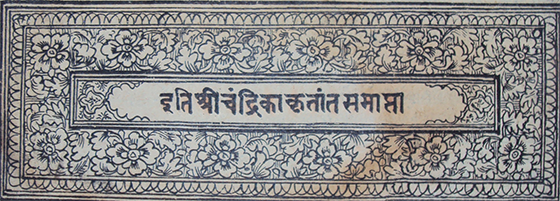 इति श्रीचंद्रिकाकृतांत समाप्ता